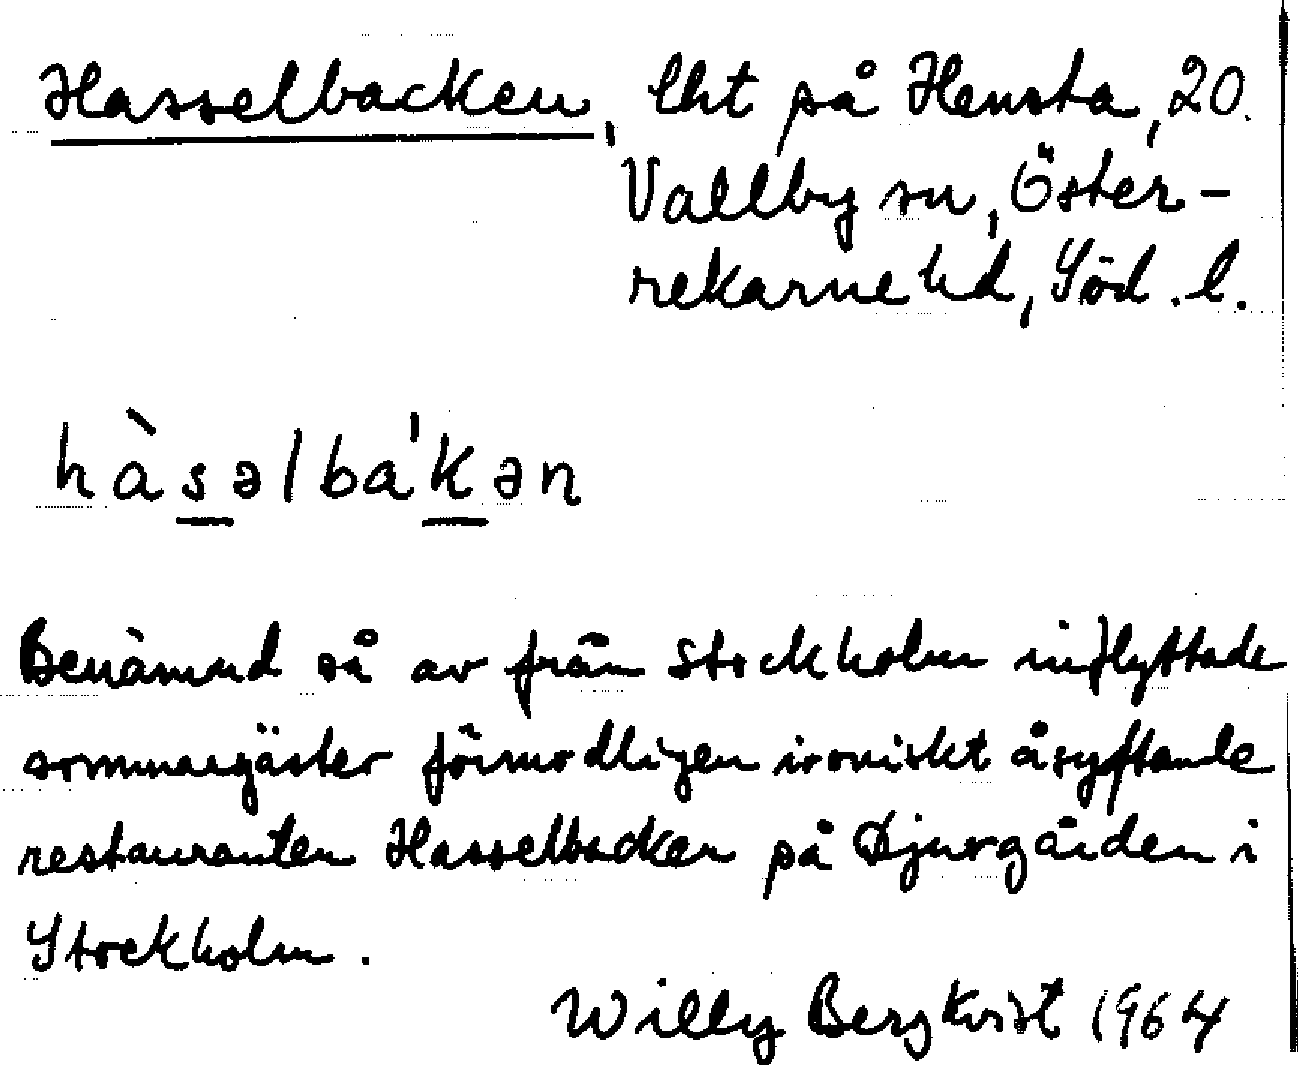 Hasselbacken, lht på Hensta, 20.
Vallby sn, Öster-
rekarne hd, Söd. l.
hàsəlba'kən
Benämnd så av från Stockholm inflyttade
sommargäster förmodligen ironiskt åsyftande
restauranten Hasselbacken på Djurgården i
Stockholm.
Willy Bergkvist 1964